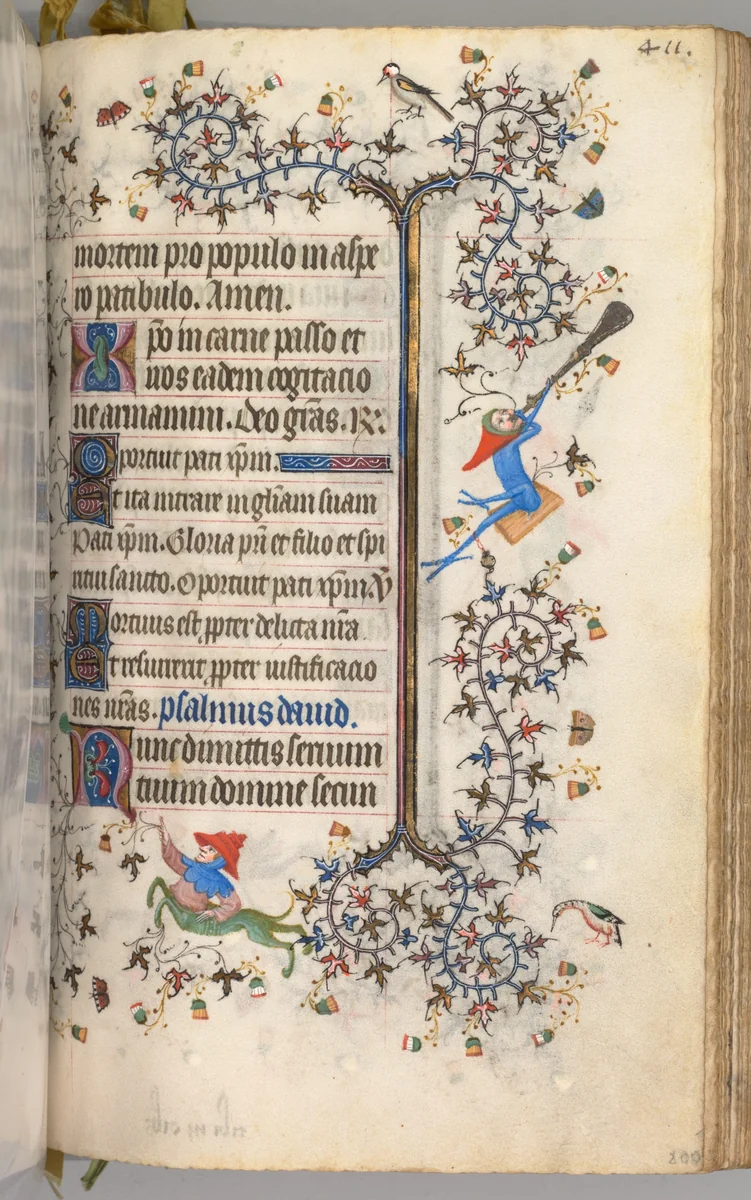 411.
mortem pro populo in aspe
ro patibulo. Amen.
Xpō in carne passo et
uos eadem cogitacio
ne armamini. Deo grās. R̸.
Oportuit pati xp̄m.
Et ita intrare in gl̄iam suam
Pati xp̄m. Gloria pr̄i et filio et spi
ritui sancto. Oportuit pati xp̄m. V̸
Mortuus est p̱pter delicta nr̄a
Et resurrexit p̱pter iustificacio
nes nr̄as. psalmus dauid.
Nunc dimittis seruum
tuum domine secun